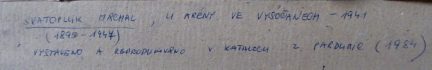 SVATOPLUK MÁCHAL, U ARENY VE VYSOČANECH - 1941
(1899 - 1947)
VYSTAVENO A REPRODUKOVÁNO V KATALOGU Z PARDUBIC (1984)